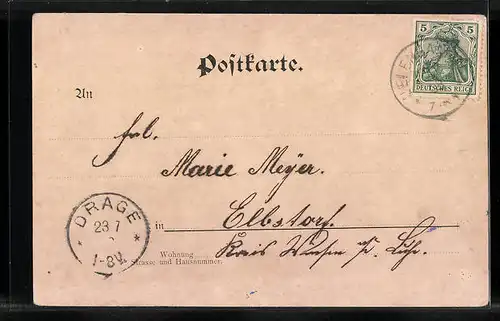 5 5
DEUTSCHES REICH
Postkarte.
An
Frl.
Marie Meyer.
DRAGE
23 7
1-8V.
in Elbstorf.
Wohnung Kreis Winsen a. d. Luhe.
Strasse und Hausnummer.